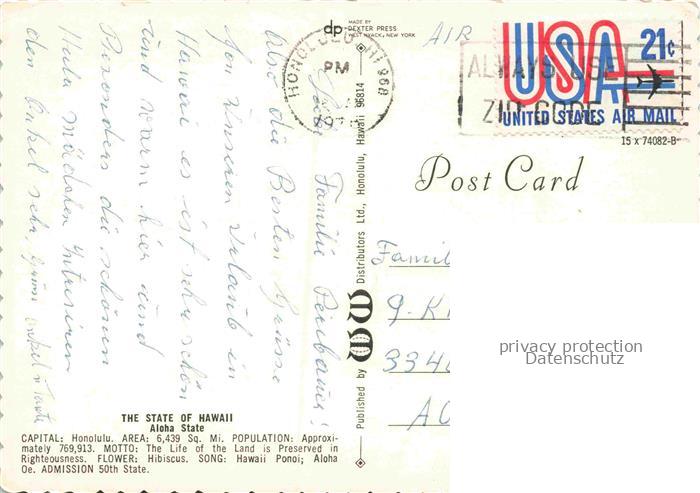 dp MADE BY
DEXTER PRESS
WEST NYACK, NEW YORK
AIR
HONOLULU, HI 968
PM
ALWAYS USE
ZIP CODE
USA 21c
UNITED STATES AIR MAIL
15 x 74082-B
Post Card
Published by Distributors Ltd., Honolulu, Hawaii 96814
Familie
Also die Besten Grüsse
Urlaub in
Hawaii es ist sehr schön
und warm hier und
die schönen
Hula mädchen
den Onkel sehr
Famil
9-K
334
A
privacy protection
Datenschutz
THE STATE OF HAWAII
Aloha State
CAPITAL: Honolulu. AREA: 6,439 Sq. Mi. POPULATION: Approxi-
mately 769,913. MOTTO: The Life of the Land is Preserved in
Righteousness. FLOWER: Hibiscus. SONG: Hawaii Ponoi; Aloha
Oe. ADMISSION 50th State.